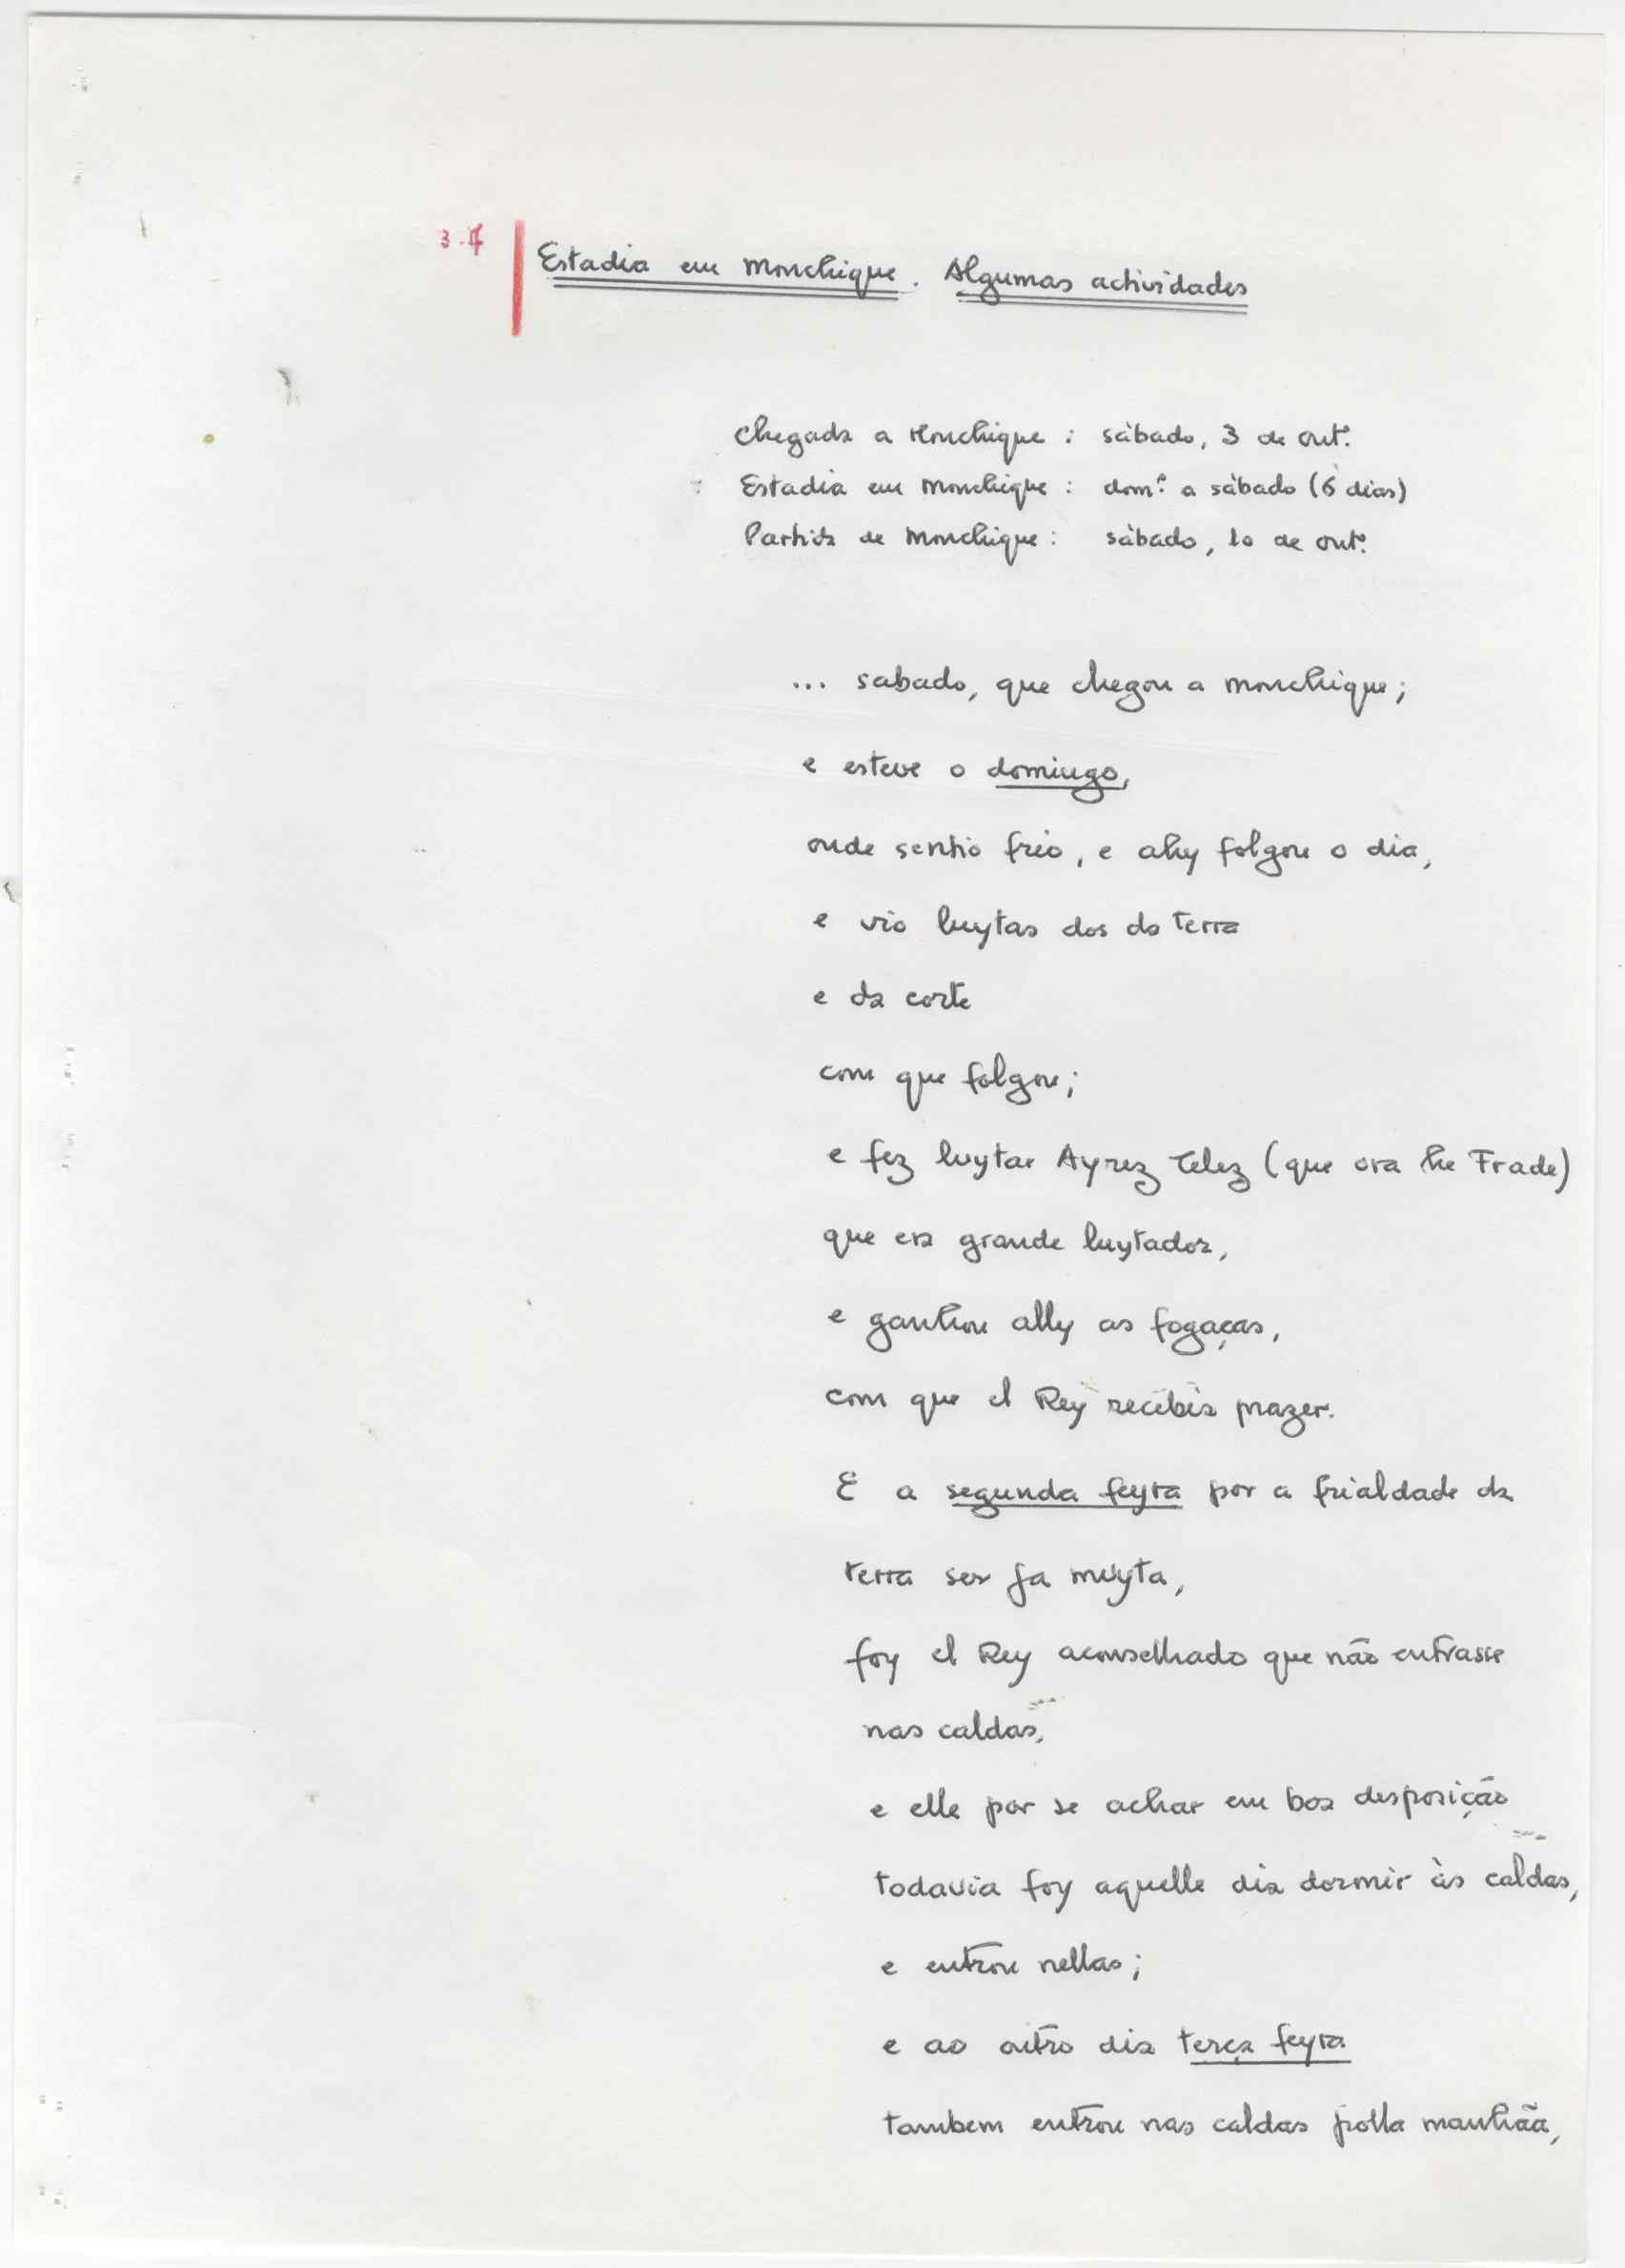 3.4 Estadia em Monchique. Algumas actividades
Chegada a Monchique : sábado, 3 de out.º
Estadia em Monchique : dom.º a sábado (6 dias)
Partida de Monchique : sábado, 10 de out.º
... sabado, que chegou a Monchique;
e esteve o domingo,
onde sentio frio, e ahy folgou o dia,
e vio luytas dos da terra
e da corte
com que folgou;
e fez luytar Ayrez Telez (que ora he Frade)
que era grande luytador,
e ganhou ally as fogaças,
com que el Rey recebia prazer.
E a segunda feyra por a frialdade da
terra ser ja muyta,
foy el Rey aconselhado que não entrasse
nas caldas,
e elle por se achar em boa desposição
todavia foy aquelle dia dormir às caldas,
e entrou nellas;
e ao outro dia terça feyra
tambem entrou nas caldas polla manhãa,